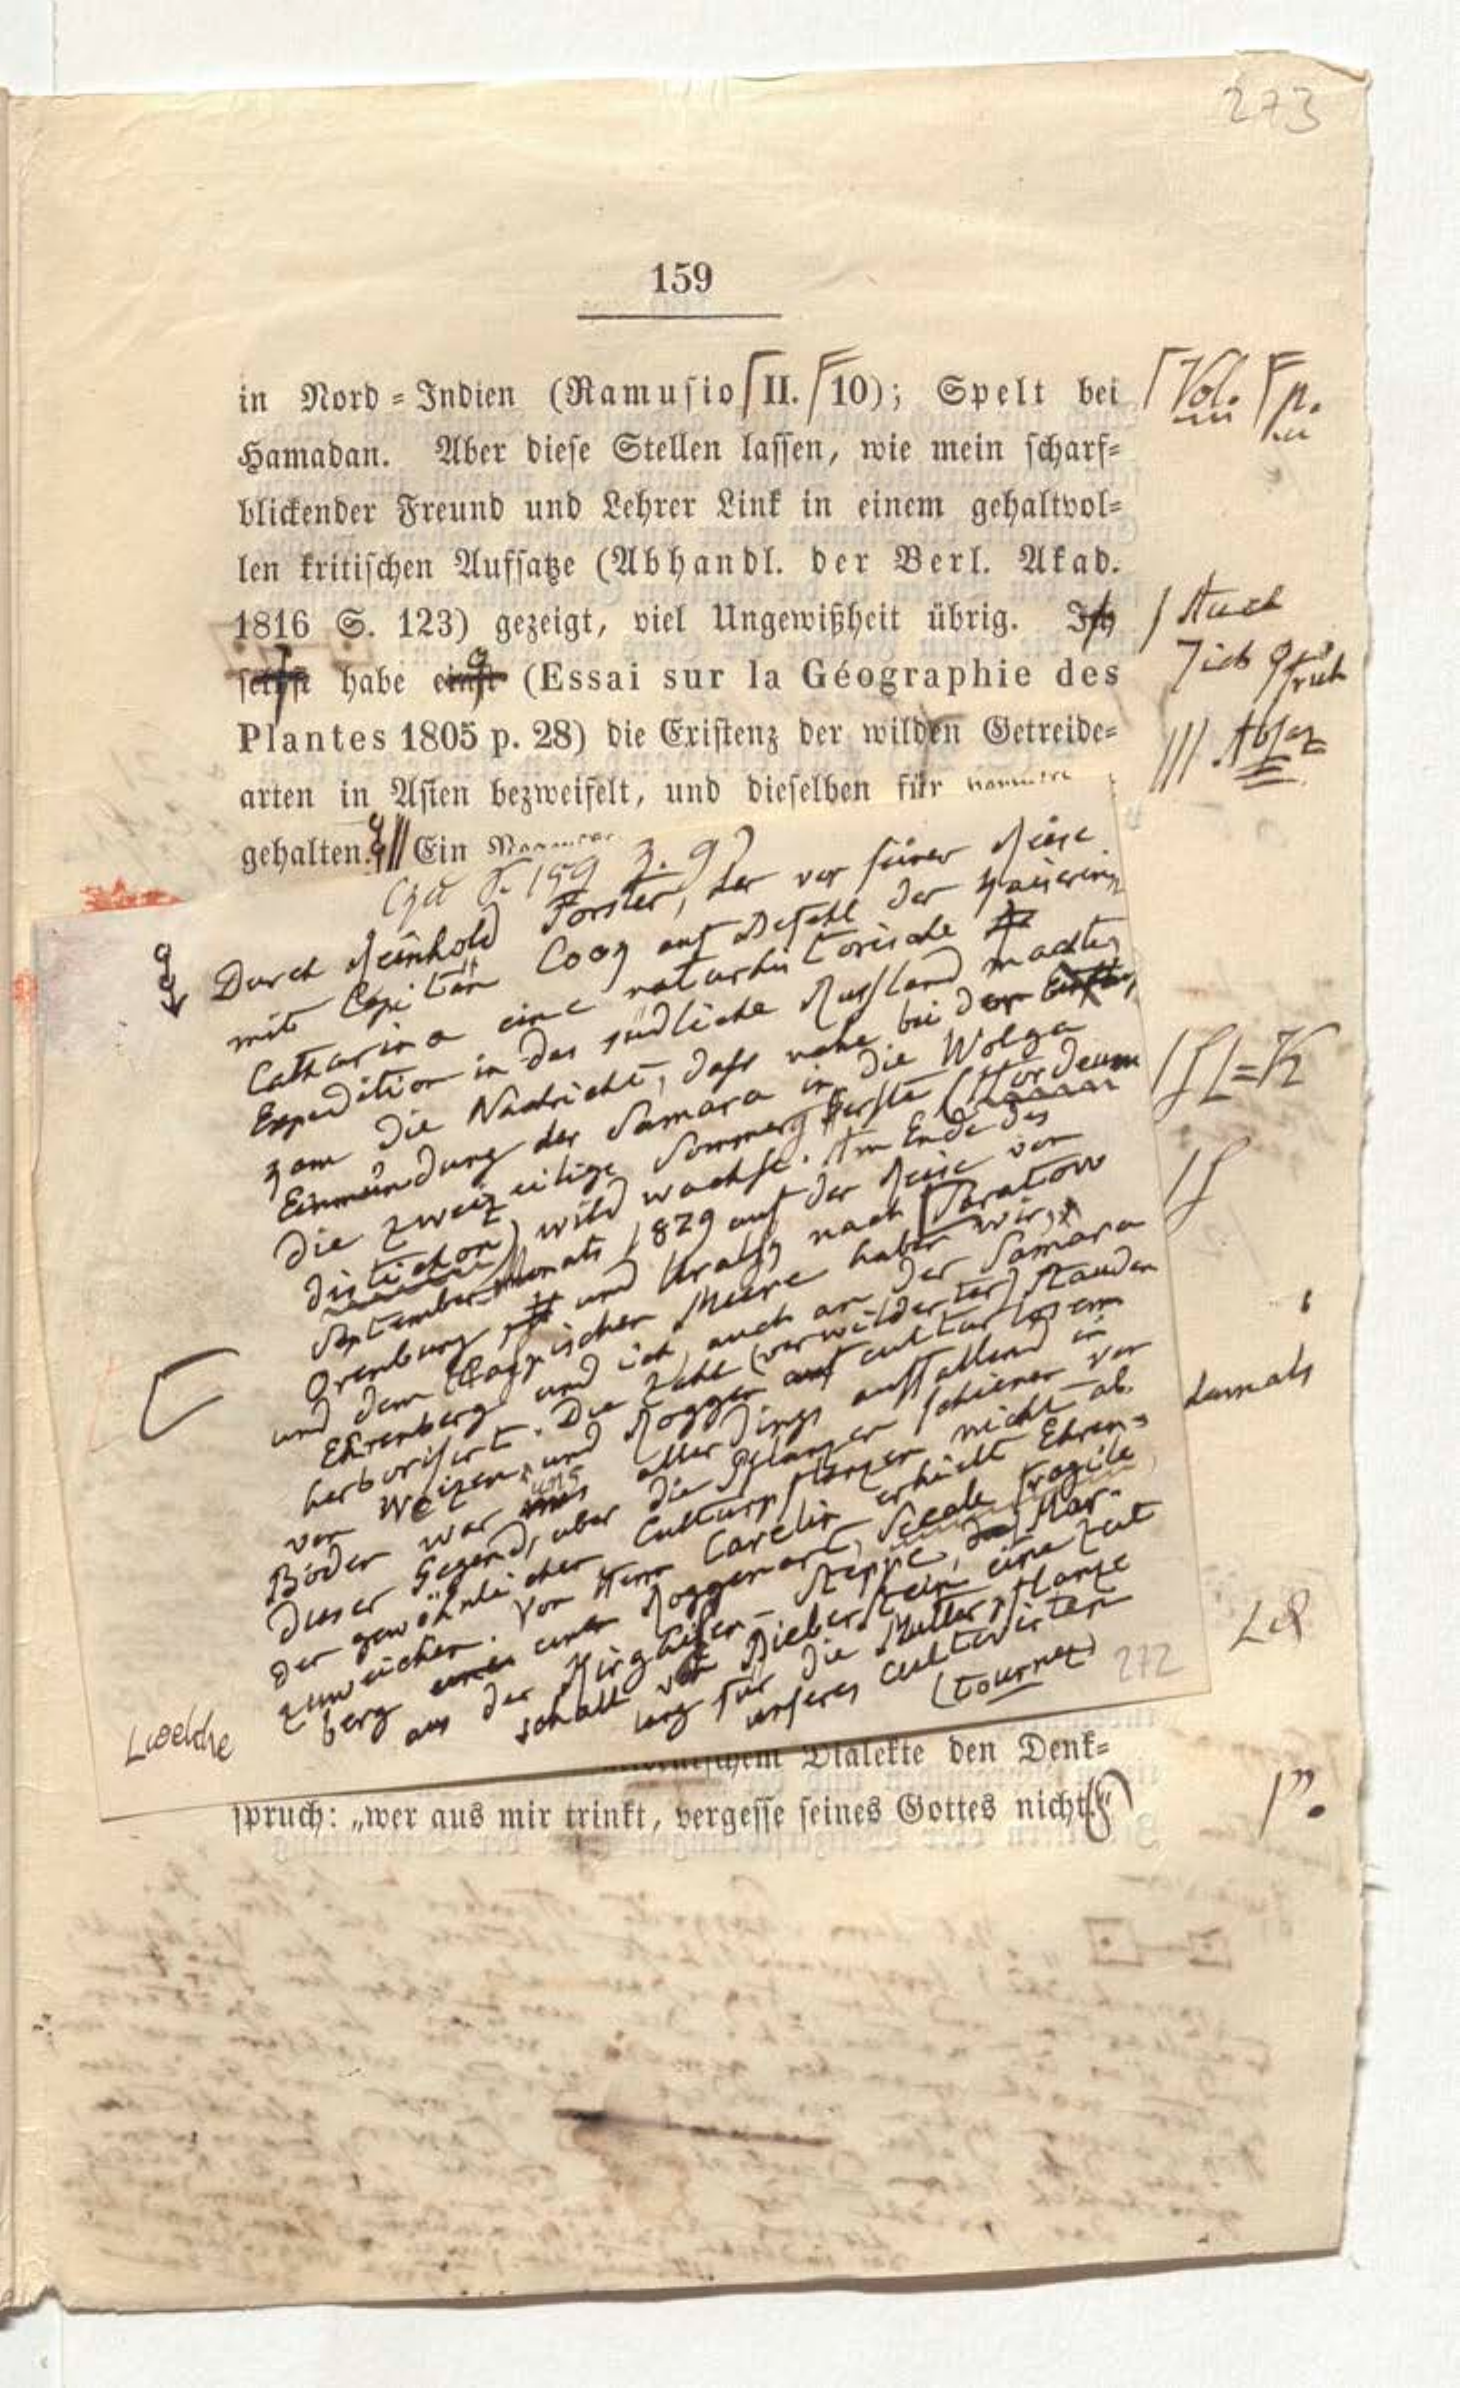 273
159
in Nord-Indien (Ramusio II. 10); Spelt bei
Vol. p.
Hamadan. Aber diese Stellen lassen, wie mein scharf-
blickender Freund und Lehrer Link in einem gehaltvol-
len kritischen Aufsatze (Abhandl. der Berl. Akad.
1816 S. 123) gezeigt, viel Ungewißheit übrig. Ich
Auch
selbst habe einst (Essai sur la Géographie des
ich früh
Plantes 1805 p. 28) die Existenz der wilden Getreide-
Absaz
arten in Asien bezweifelt, und dieselben für
gehalten. Ein
(zu S. 159 Z. 9)
Durch Reinhold Forster, der vor seiner Reise
mit Capitän Cook auf Befehl der Kaiserin
Catharina eine naturhistorische
Expedition in das südliche Russland machte,
kam die Nachricht, dass nahe bei der
Einmündung der Samara in die Wolga
die zweizeilige Sommergerste (Hordeum
distichon) wild wachse. Am Ende des
Septembermonats 1829 auf der Reise von
Orenburg und Uralsk nach Saratow
und dem Caspischen Meere haben wir,
Ehrenberg und ich, auch an der Samara
herborisirt. Die Zahl (verwilderter) Stauden
von Weizen und Roggen auf culturlosem
Boden war uns allerdings auffallend in
dieser Gegend, aber die Pflanzen schienen von
der gewöhnlichen Culturpflanzen nicht ab-
zuweichen. Von Herrn Carelin erhielt Ehren-
damals
berg einer einer Roggenart, Secale fragile
aus der Kirghisen-Steppe, das Mar-
schall von Bieberstein eine Zeit
lang für die Mutterpflanze
unseres cultivirten
(tournez)
272
L welche
Dialekte den Denk-
spruch: „wer aus mir trinkt, vergesse seines Gottes nicht."